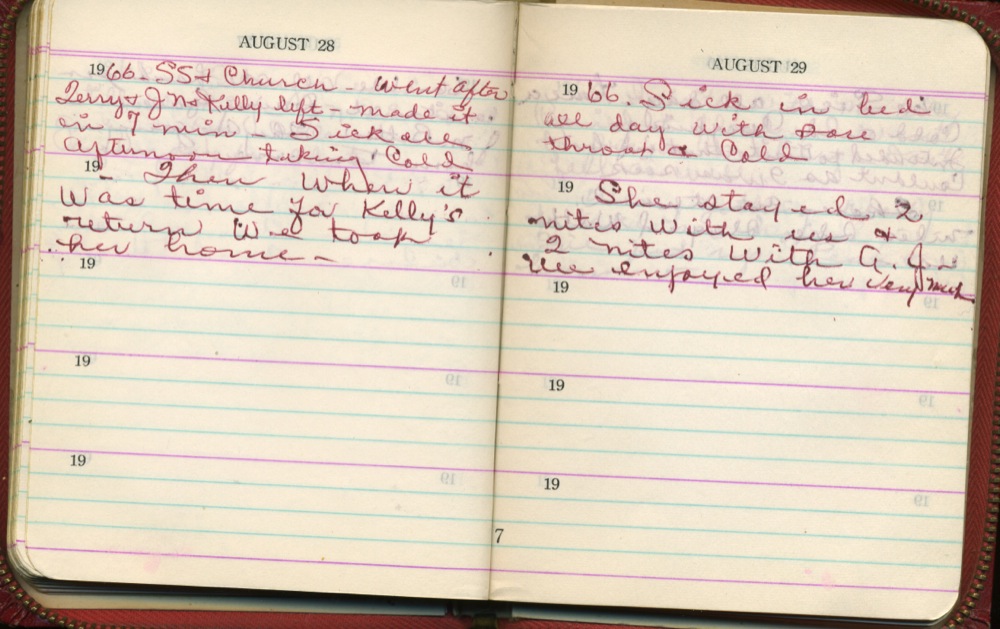 AUGUST 28
1966 - SS & Church - Went after
Terry & J N & Kelly left - made it
in 7 min - Sick all
afternoon taking Cold
19 - Then when it
was time for Kelly's
return we took
her home -
19
19
19
AUGUST 29
1966. Sick in bed
all day with sore
throat & Cold
19 She stayed 2
nites with us &
2 nites with G.J. -
we enjoyed her very much
19
19
19
7